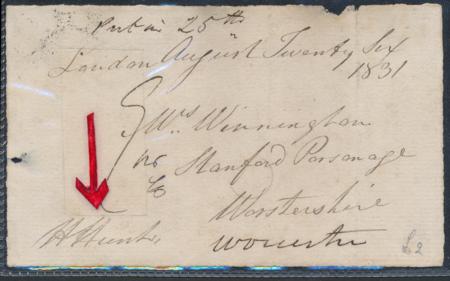 Put in 25th
London August Twenty Six
1831
Mrs Winnington
Stanford Parsonage
Worstershire
Worcester
H Hunt
£2